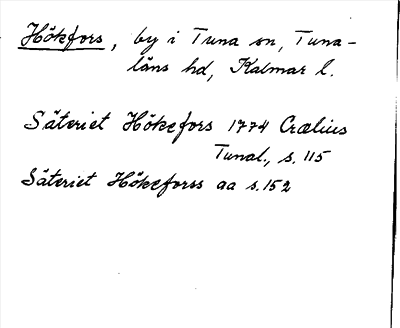 Hökfors, by i Tuna sn, Tuna-
läns hd, Kalmar l.
Säteriet Hökefors 1774 Crælius
Tunal., s. 115
Säteriet Hökeforss aa s. 152